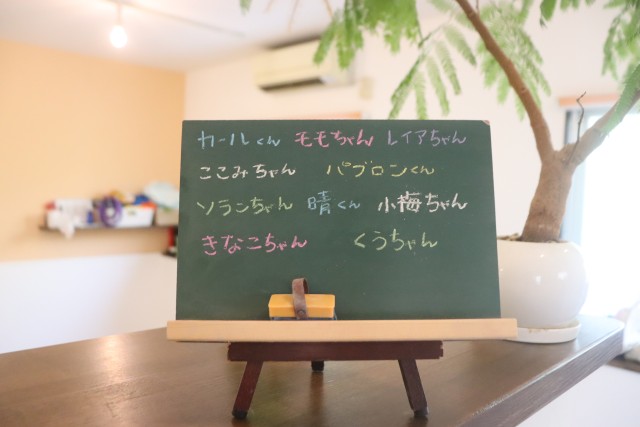 カールくん モモちゃん レイアちゃん
ここみちゃん パブロンくん
ソランちゃん 晴くん 小梅ちゃん
きなこちゃん くうちゃん